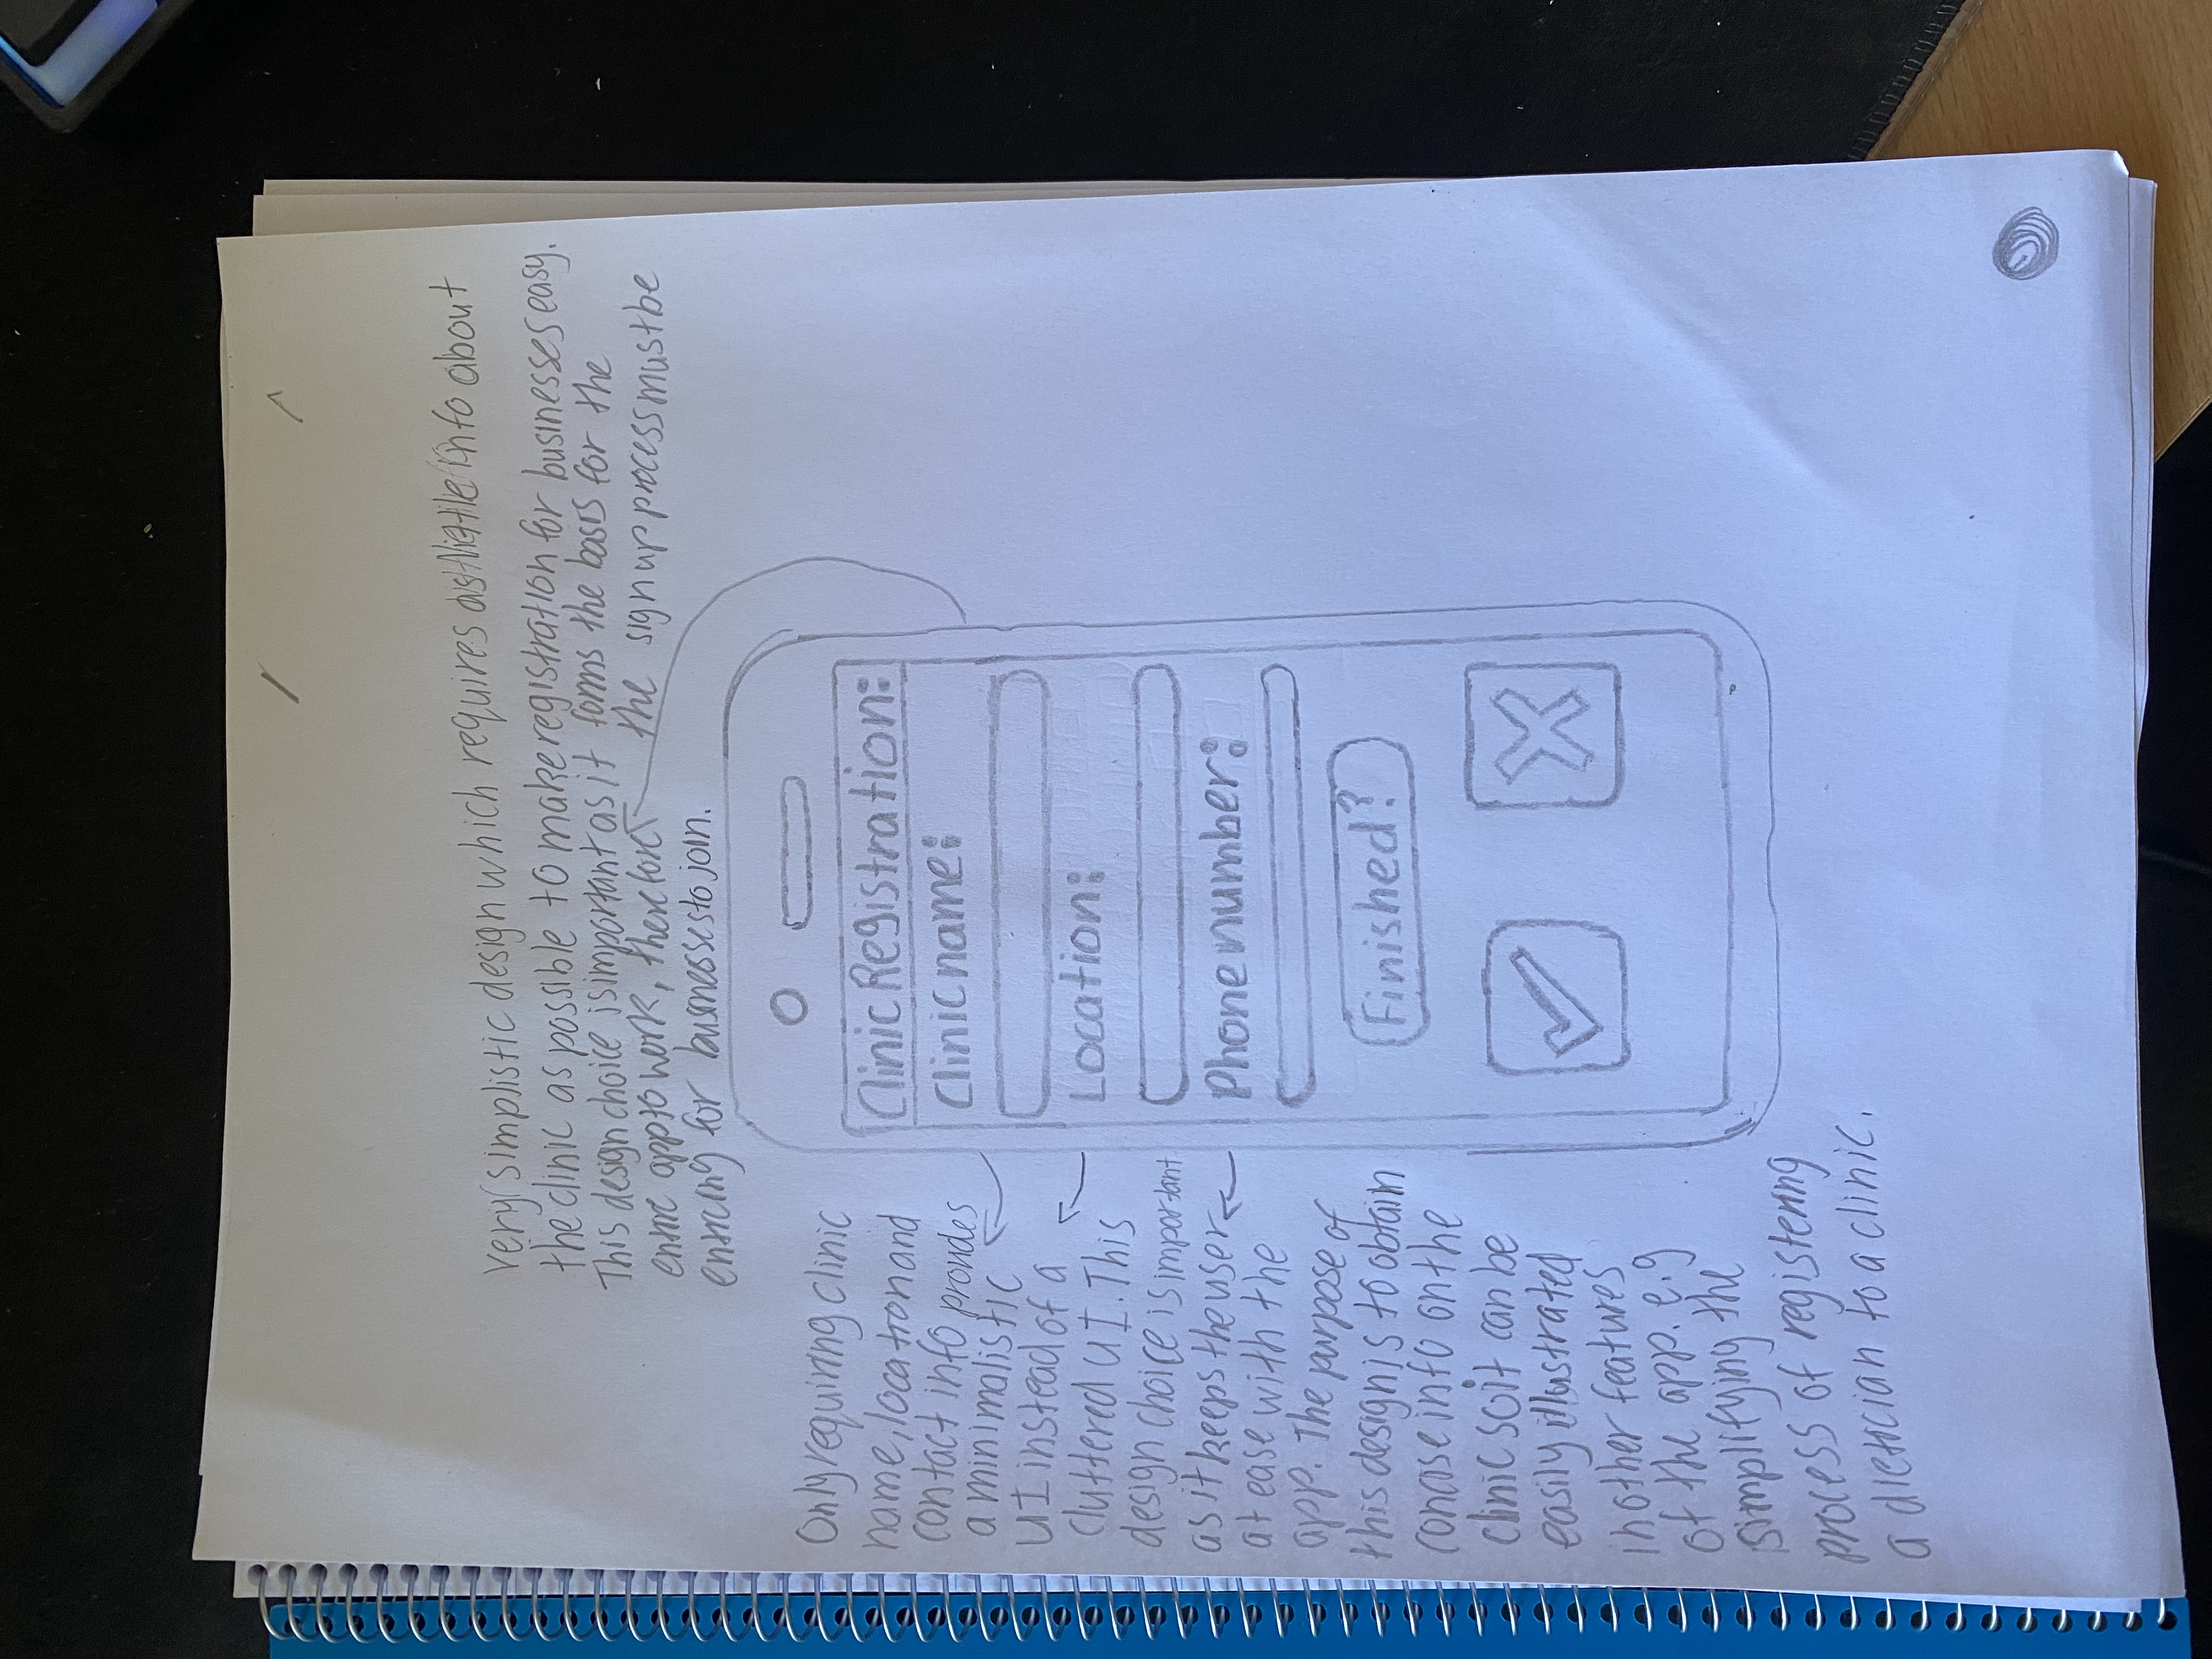 very simplistic design which requires as little info about
the clinic as possible to make registration for businesses easy.
This design choice is important as it forms the basis for the
entire app to work, therefore the sign up process must be
enticing for businesses to join.
Only requiring clinic
name, location and
contact info provides
a minimalistic
UI instead of a
cluttered UI. This
design choice is important
as it keeps the user
at ease with the
app. The purpose of
this design is to obtain
concise info on the
clinic so it can be
easily illustrated
in other features
of the app. e.g
simplifying the
process of registering
a dietician to a clinic.
Clinic Registration:
Clinic name:
Location:
Phone number:
Finished?